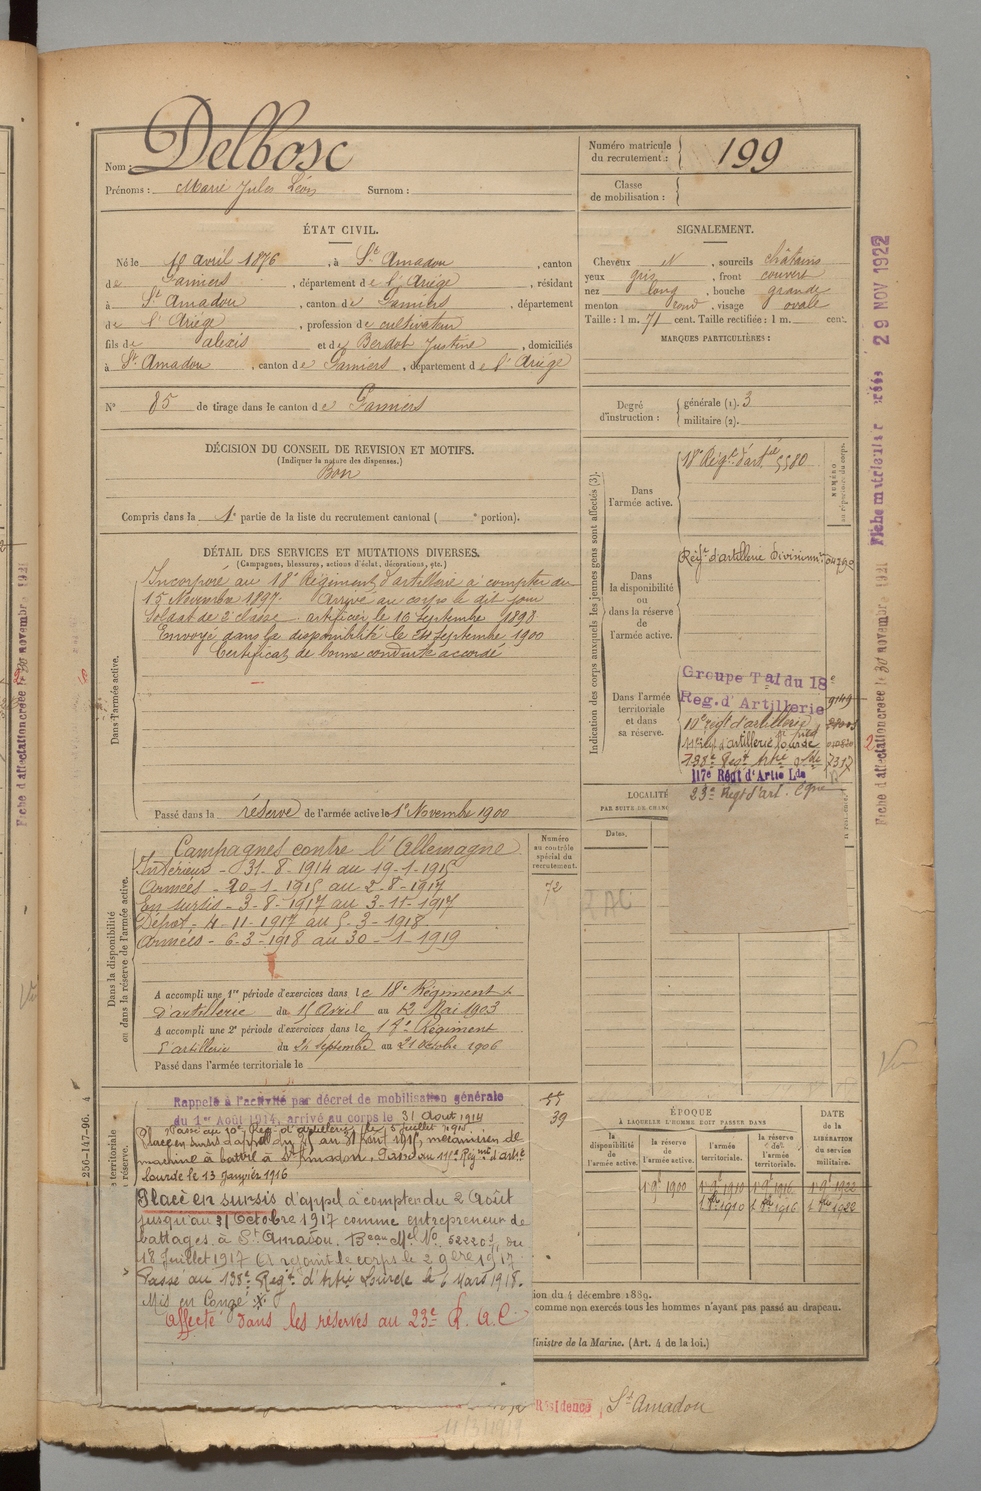 Nom : Delbosc
Prénoms : Marie Jules Léon Surnom :
Numéro matricule
du recrutement : 199
Classe
de mobilisation :
ÉTAT CIVIL.
Né le 10 avril 1876, à St Amadou, canton
de Pamiers, département de l'Ariège, résidant
à St Amadou, canton de Pamiers, département
de l'Ariège, profession de cultivateur
fils de alexis et de Berdot Justine, domiciliés
à St Amadou, canton de Pamiers, département de l'Ariège
N° 85 de tirage dans le canton de Pamiers
SIGNALEMENT.
Cheveux N, sourcils châtains
yeux gris, front couvert
nez long, bouche grande
menton rond, visage ovale
Taille : 1 m. 71 cent. Taille rectifiée : 1 m. cent.
MARQUES PARTICULIÈRES :
Degré
d'instruction :
générale (1). 3
militaire (2).
DÉCISION DU CONSEIL DE REVISION ET MOTIFS.
(Indiquer la nature des dispenses.)
Bon
Compris dans la 1e partie de la liste du recrutement cantonal ( e portion).
DÉTAIL DES SERVICES ET MUTATIONS DIVERSES.
(Campagnes, blessures, actions d'éclat, décorations, etc.)
Dans l'armée active.
Incorporé au 18e Régiment d'artillerie à compter du
15 Novembre 1897. Arrivé au corps le dit jour
Soldat de 2e classe. artificier le 16 Septembre 1898
Envoyé dans la disponibilité le 24 Septembre 1900
Certificat de bonne conduite accordé
Passé dans la réserve de l'armée active le 1er Novembre 1900
Indication des corps auxquels les jeunes gens sont affectés (3).
NUMÉRO
au répertoire du corps.
Dans
l'armée active.
18e Régt d'artie 5580
Dans
la disponibilité
ou
dans la réserve
de
l'armée active.
Régt d'artillerie Divisionre
Dans l'armée
territoriale
et dans
sa réserve.
Groupe Tal du 18e
Reg. d'Artillerie 9149
10e Régt d'artillerie
d'artillerie lourde
138e Régt Artie 7317
117e Régt d'Artie Lde
23e Régt d'art. Cgne
LOCALITÉ
PAR SUITE DE CHANG
Dates.
Dans la disponibilité
ou dans la réserve de l'armée active.
Campagnes contre l'Allemagne
Intérieur - 31-8-1914 au 19-1-1915
Armées - 20-1-1915 au 2-8-1917
En sursis - 3-8-1917 au 3-11-1917
Dépôt - 4-11-1917 au 5-3-1918
Armées - 6-3-1918 au 30-1-1919
Numéro
au contrôle
spécial du
recrutement.
72
A accompli une 1re période d'exercices dans le 18e Régiment
d'artillerie du 15 Avril au 12 Mai 1903
A accompli une 2e période d'exercices dans le 18e Régiment
d'artillerie du 24 septembre au 21 octobre 1906
Passé dans l'armée territoriale le
Rappelé à l'activité par décret de mobilisation générale
du 1er Août 1914, arrivé au corps le 31 Août 1914
39
Passé au 10e Reg. d'artillerie le 5 juillet 1915.
Placé en sursis d'appel du 25 au 31 août 1915, mécanicien de
machine à battre à St Amadou. Passé au Régiment d'artie
lourde le 13 janvier 1916
Placé en sursis d'appel à compter du 2 Août
jusqu'au 31 Octobre 1917 comme entrepreneur de
battages à St Amadou. Beau Mel No 52220, du
18 Juillet 1917 a rejoint le corps le 2 9bre 1917
Passé au 138e Régt d'Artie Lourde le 6 Mars 1918.
Mis en Congé
affecté dans les réserves au 23e R. A. C
ÉPOQUE
À LAQUELLE L'HOMME DOIT PASSER DANS
la
disponibilité
de
l'armée active.
la réserve
de
l'armée active.
l'armée
territoriale.
la réserve
de
l'armée
territoriale.
DATE
de la
LIBÉRATION
du service
militaire.
1er 9bre 1900 1er 9bre 1910 1er 9bre 1916 1er 9bre 1922
1er 8bre 1910 1er 8bre 1916 1er 8bre 1922
ion du 4 décembre 1889.
comme non exercés tous les hommes n'ayant pas passé au drapeau.
Ministre de la Marine. (Art. 4 de la loi.)
Résidence, St Amadou
256-147-96. 4
Fiche matriculaire créée 29 NOV 1922
Fiche d'affectation créée le 30 novembre 1921
Fiche d'affectation créée le 30 novembre 1921